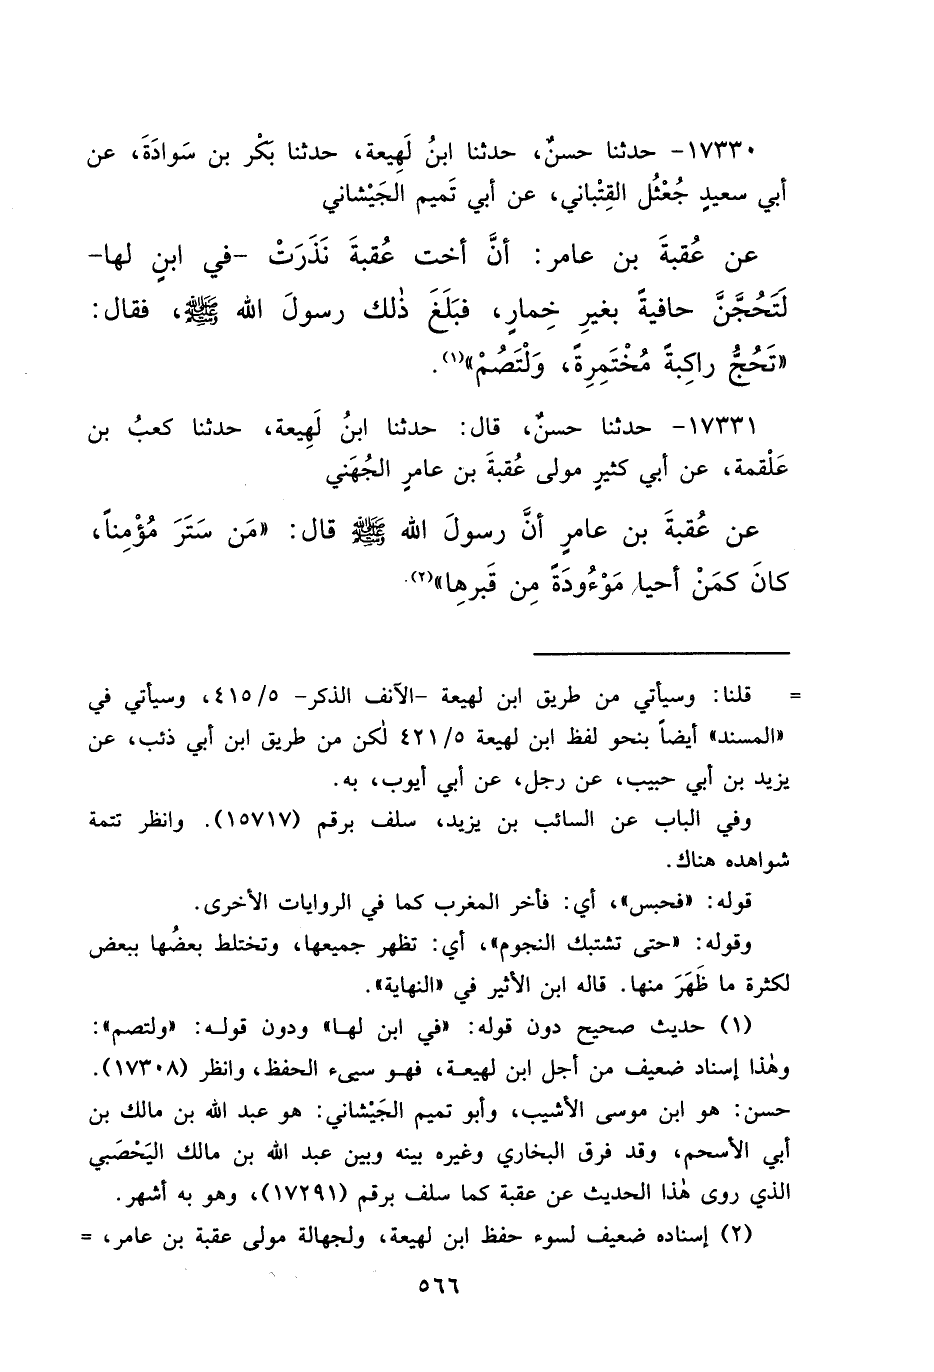 ١٧٣٣٠- حدثنا حسنٌ، حدثنا ابنُ لَهِيعة، حدثنا بَكْر بن سَوادَةَ، عن
أبي سعيدٍ جُعْثُل القِتْباني، عن أبي تَميم الجَيْشاني
عن عُقبةَ بن عامر: أنَّ أخت عُقبةَ نَذَرَتْ -في ابنٍ لها-
لَتَحُجَّنَّ حافيةً بغيرِ خِمارٍ، فبَلَغَ ذٰلك رسولَ الله ﷺ، فقال:
«تَحُجُّ راكِبةً مُخْتَمِرةً، وَلْتَصُمْ»(١).
١٧٣٣١- حدثنا حسنٌ، قال: حدثنا ابنُ لَهِيعة، حدثنا كعبُ بن
عَلْقمة، عن أبي كثيرٍ مولى عُقبةَ بن عامرٍ الجُهَني
عن عُقبةَ بن عامرٍ أنَّ رسولَ الله ﷺ قال: «مَن سَتَرَ مُؤْمِناً،
كانَ كمَنْ أحيا مَوْءُودَةً مِن قَبرِها»(٢).
= قلنا: وسيأتي من طريق ابن لهيعة -الآنف الذكر- ٤١٥/٥، وسيأتي في
«المسند» أيضاً بنحو لفظ ابن لهيعة ٤٢١/٥ لٰكن من طريق ابن أبي ذئب، عن
يزيد بن أبي حبيب، عن رجل، عن أبي أيوب، به.
وفي الباب عن السائب بن يزيد، سلف برقم (١٥٧١٧). وانظر تتمة
شواهده هناك.
قوله: «فحبس»، أي: فأخر المغرب كما في الروايات الأخرى.
وقوله: «حتى تشتبك النجوم»، أي: تظهر جميعها، وتختلط بعضُها ببعض
لكثرة ما ظَهَرَ منها. قاله ابن الأثير في «النهاية».
(١) حديث صحيح دون قوله: «في ابن لها» ودون قوله: «ولتصم»:
وهٰذا إسناد ضعيف من أجل ابن لهيعة، فهو سيىء الحفظ، وانظر (١٧٣٠٨).
حسن: هو ابن موسى الأشيب، وأبو تميم الجَيْشاني: هو عبد الله بن مالك بن
أبي الأسحم، وقد فرق البخاري وغيره بينه وبين عبد الله بن مالك اليَحْصَبي
الذي روى هٰذا الحديث عن عقبة كما سلف برقم (١٧٢٩١)، وهو به أشهر.
(٢) إسناده ضعيف لسوء حفظ ابن لهيعة، ولجهالة مولى عقبة بن عامر، =
٥٦٦